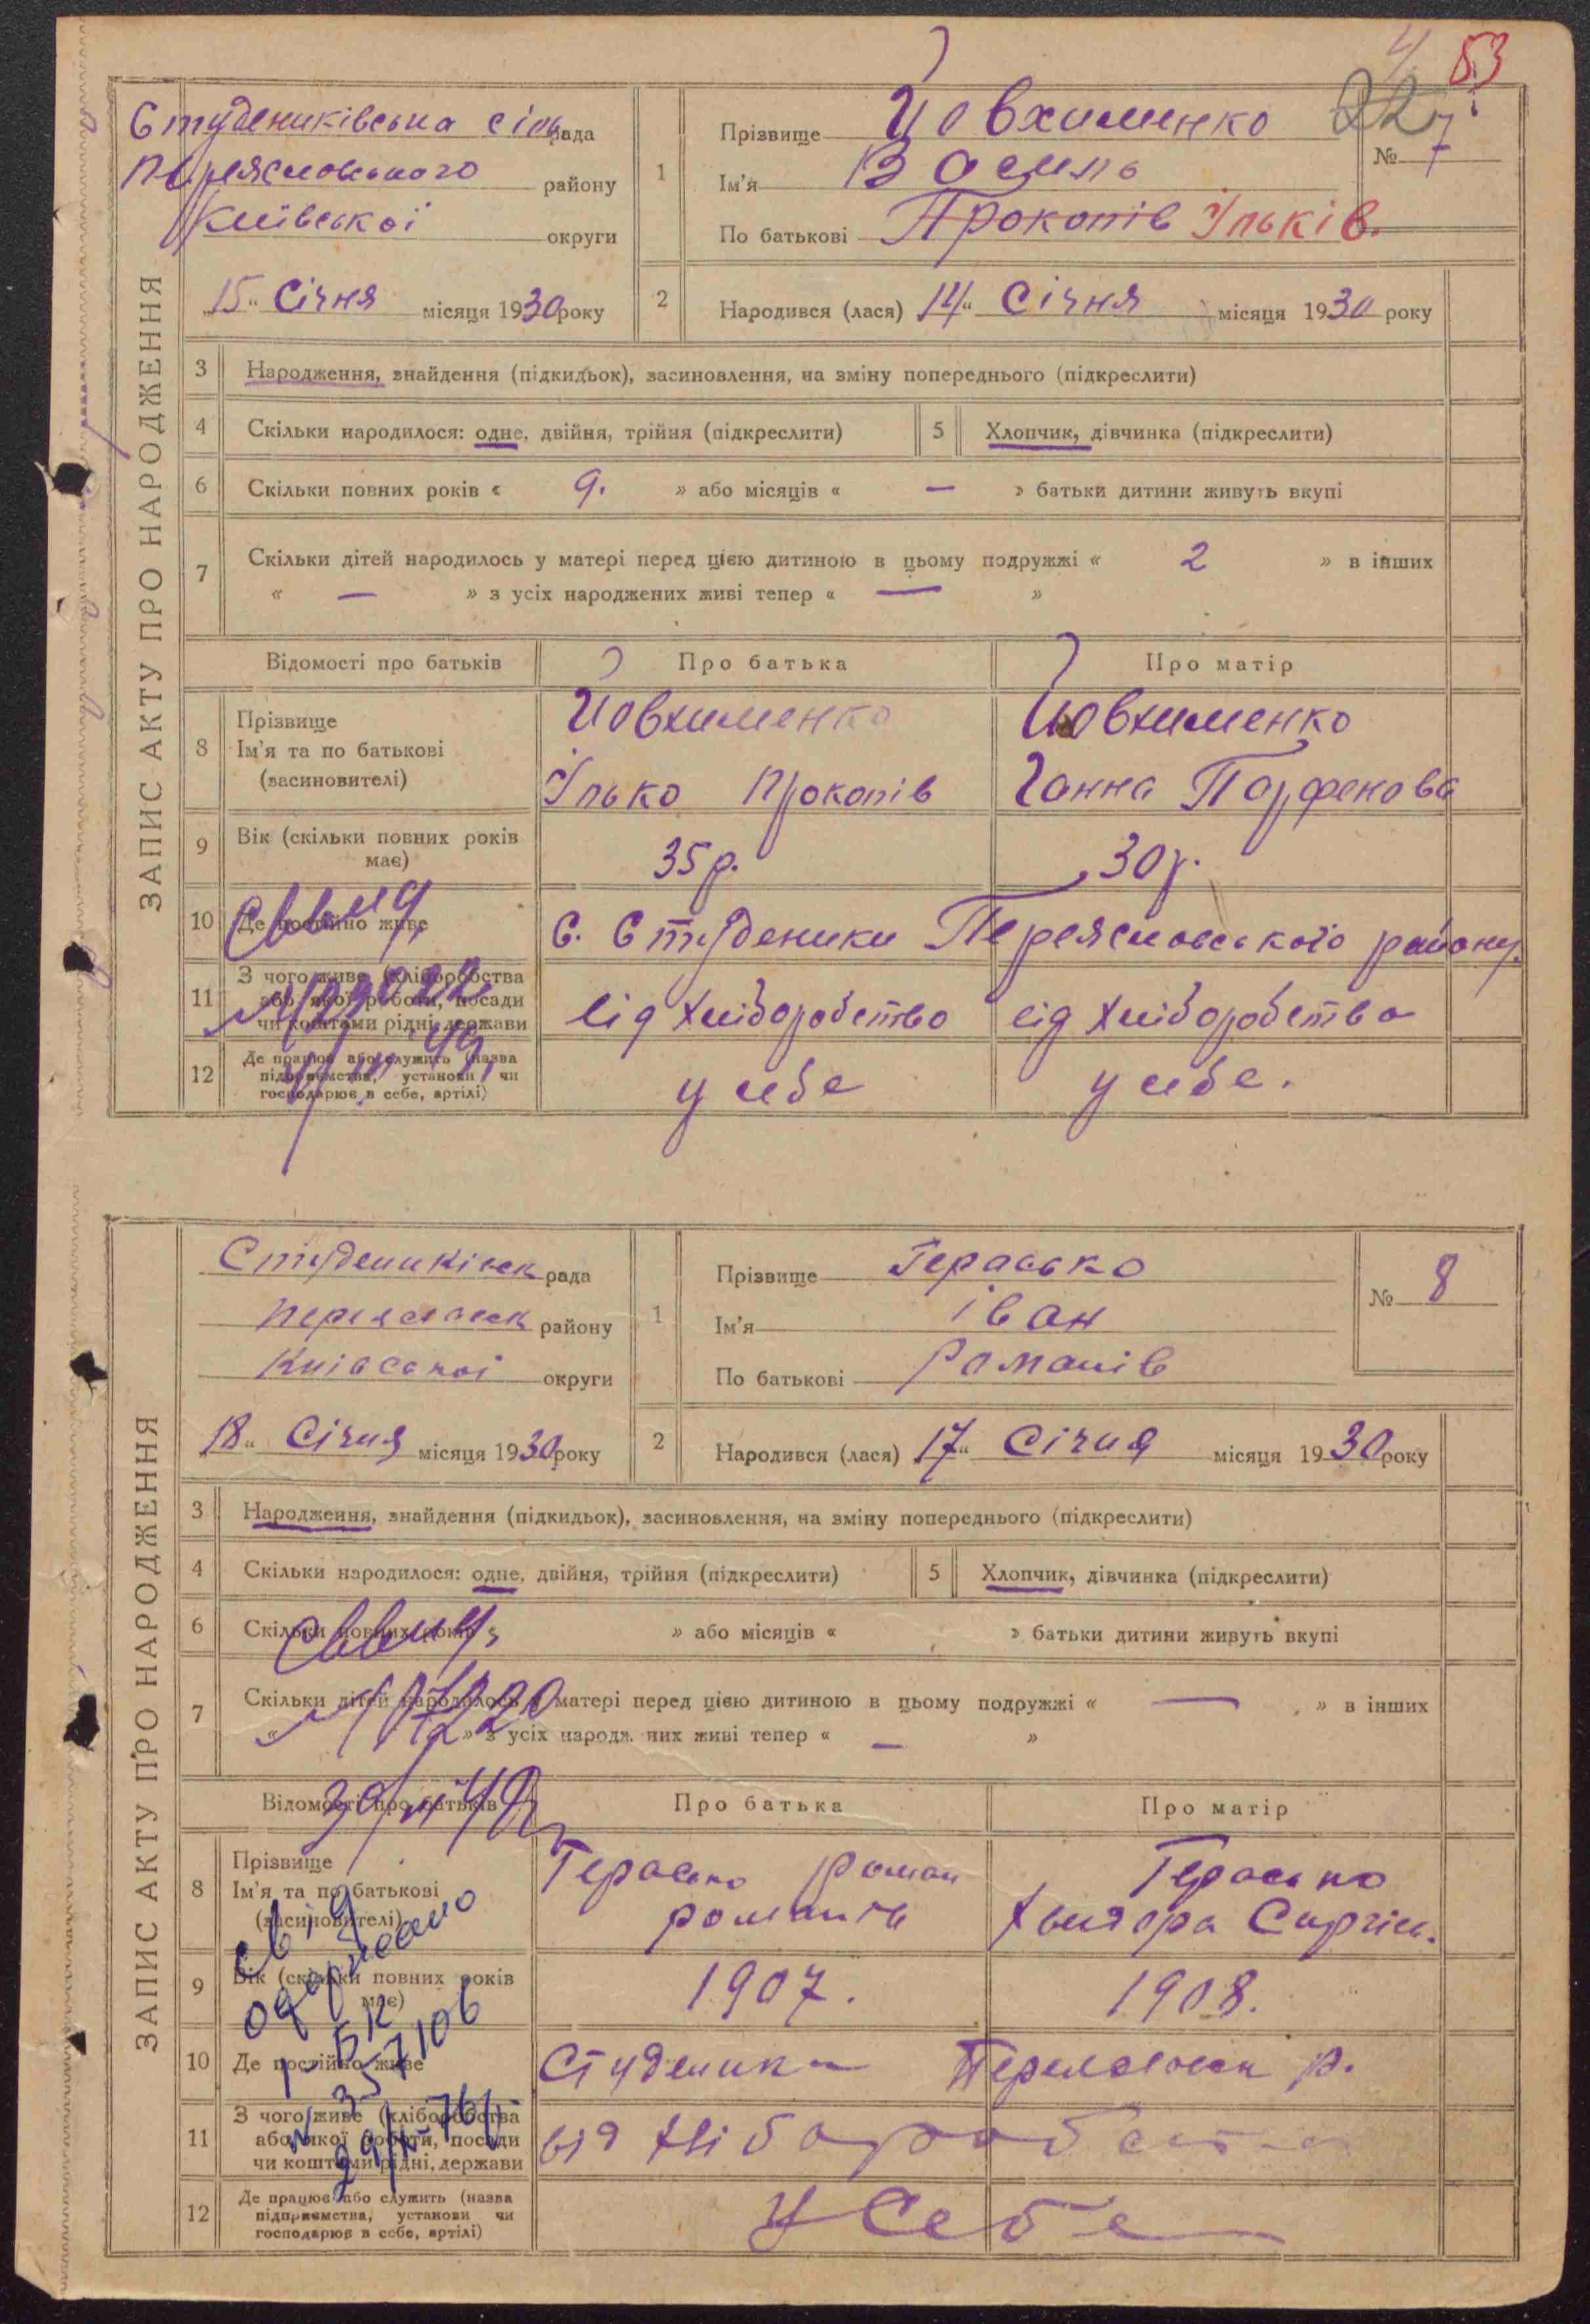 53
227
ЗАПИС АКТУ ПРО НАРОДЖЕННЯ
Студениківська сіль рада
Переяславського району
Київської округи
„15“ Січня місяця 1930 року
1 Прізвище Йовхименко № 7
Ім'я Василь
По батькові Прокопів Ільків.
2 Народився (лася) 14“ Січня місяця 1930 року
3 Народження, знайдення (підкидьок), засиновлення, на зміну попереднього (підкреслити)
4 Скільки народилося: одне, двійня, трійня (підкреслити) 5 Хлопчик, дівчинка (підкреслити)
6 Скільки повних років « 9. » або місяців « — » батьки дитини живуть вкупі
7 Скільки дітей народилось у матері перед цією дитиною в цьому подружжі « 2 » в інших
« — » з усіх народжених живі тепер « — »
Відомості про батьків Про батька Про матір
8 Прізвище Йовхименко Йовхименко
Ім'я та по батькові
(засиновителі) Ілько Прокопів Ганна Парфенова
9 Вік (скільки повних років
має) 35 р. 30 р.
10 Де постійно живе С. Студеники Переяславського району.
11 З чого живе (хліборобства
або якої роботи, посади від хліборобство від хліборобства
чи коштами рідні, держави
12 Де працює або служить (назва
підприємства, установи чи у себе у себе.
господарює в себе, артілі)
ЗАПИС АКТУ ПРО НАРОДЖЕННЯ
Студениківськ рада
Переяславськ району
Київської округи
„18“ Січня місяця 1930 року
1 Прізвище Герасько № 8
Ім'я Іван
По батькові Романів
2 Народився (лася) 17“ Січня місяця 1930 року
3 Народження, знайдення (підкидьок), засиновлення, на зміну попереднього (підкреслити)
4 Скільки народилося: одне, двійня, трійня (підкреслити) 5 Хлопчик, дівчинка (підкреслити)
6 Скільки повних років « » або місяців « » батьки дитини живуть вкупі
7 Скільки дітей народилось у матері перед цією дитиною в цьому подружжі « — » в інших
« » з усіх народжених живі тепер « — »
Відомості про батьків Про батька Про матір
8 Прізвище Герасько Роман Герасько
Ім'я та по батькові Романів
(засиновителі)
9 Вік (скільки повних років
має) 1907. 1908.
10 Де постійно живе Студеники Переяславськ р.
11 З чого живе (хліборобства
або якої роботи, посади від хліборобства
чи коштами рідні, держави
12 Де працює або служить (назва
підприємства, установи чи У себе
господарює в себе, артілі)